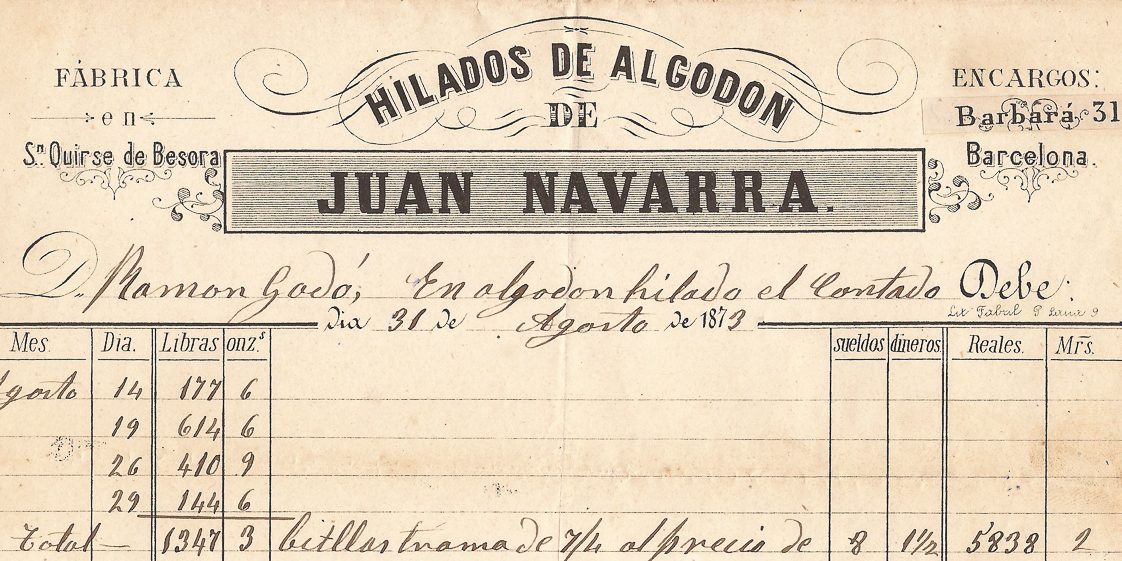 HILADOS DE ALGODON
DE
JUAN NAVARRA.
FÁBRICA
en
Sn. Quirse de Besora
ENCARGOS:
Barbará 31
Barcelona.
D. Ramon Godó, En algodon hilado el Contado Debe:
Dia 31 de Agosto de 1873
Lit Fabril
Mes. Dia. Libras onz.s sueldos dineros. Reales. Mrs.
Agosto 14 177 6
19 614 6
26 410 9
29 144 6
Total 1347 3 bitllas trama de 7/4 al precio de 8 1 1/2 5838 2